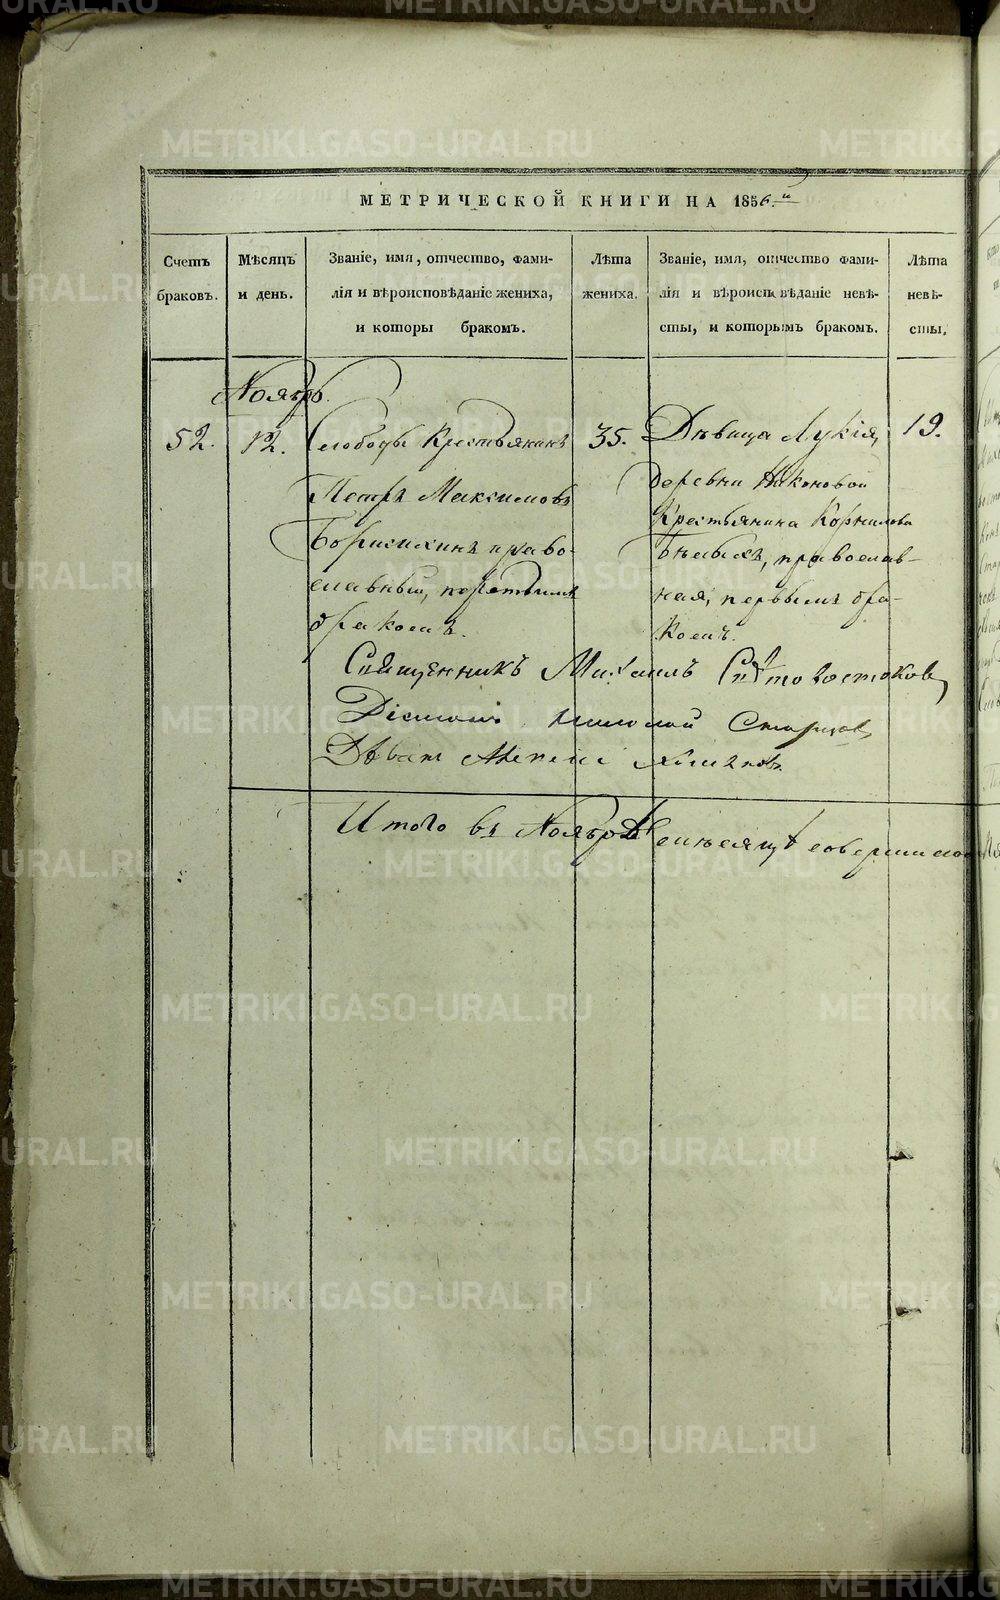 МЕТРИЧЕСКОЙ КНИГИ НА 1856.
Счетъ браковъ.
Мѣсяцъ и день.
Званіе, имя, отчество, фами-
лія и вѣроисповѣданіе жениха,
и которы бракомъ.
Лѣта жениха.
Званіе, имя, отчество фами-
лія и вѣроисповѣданіе невѣ-
сты, и которымъ бракомъ.
Лѣта невѣ-
сты.
Ноябрь.
52.
12.
Слободы Крестьянинъ
Петръ Максимовъ
Борисихинъ право-
славный,
бракомъ.
35.
Дѣвица Лукія,
деревни Никоновой
Крестьянина Корнилова
Бѣлыхъ, православ-
ная, первымъ бра-
комъ.
19.
Священникъ Михаилъ Святовостоковъ
Діаконъ Николай Старцовъ
Итого въ Ноябрѣ мѣсяцѣ
METRIKI.GASO-URAL.RU